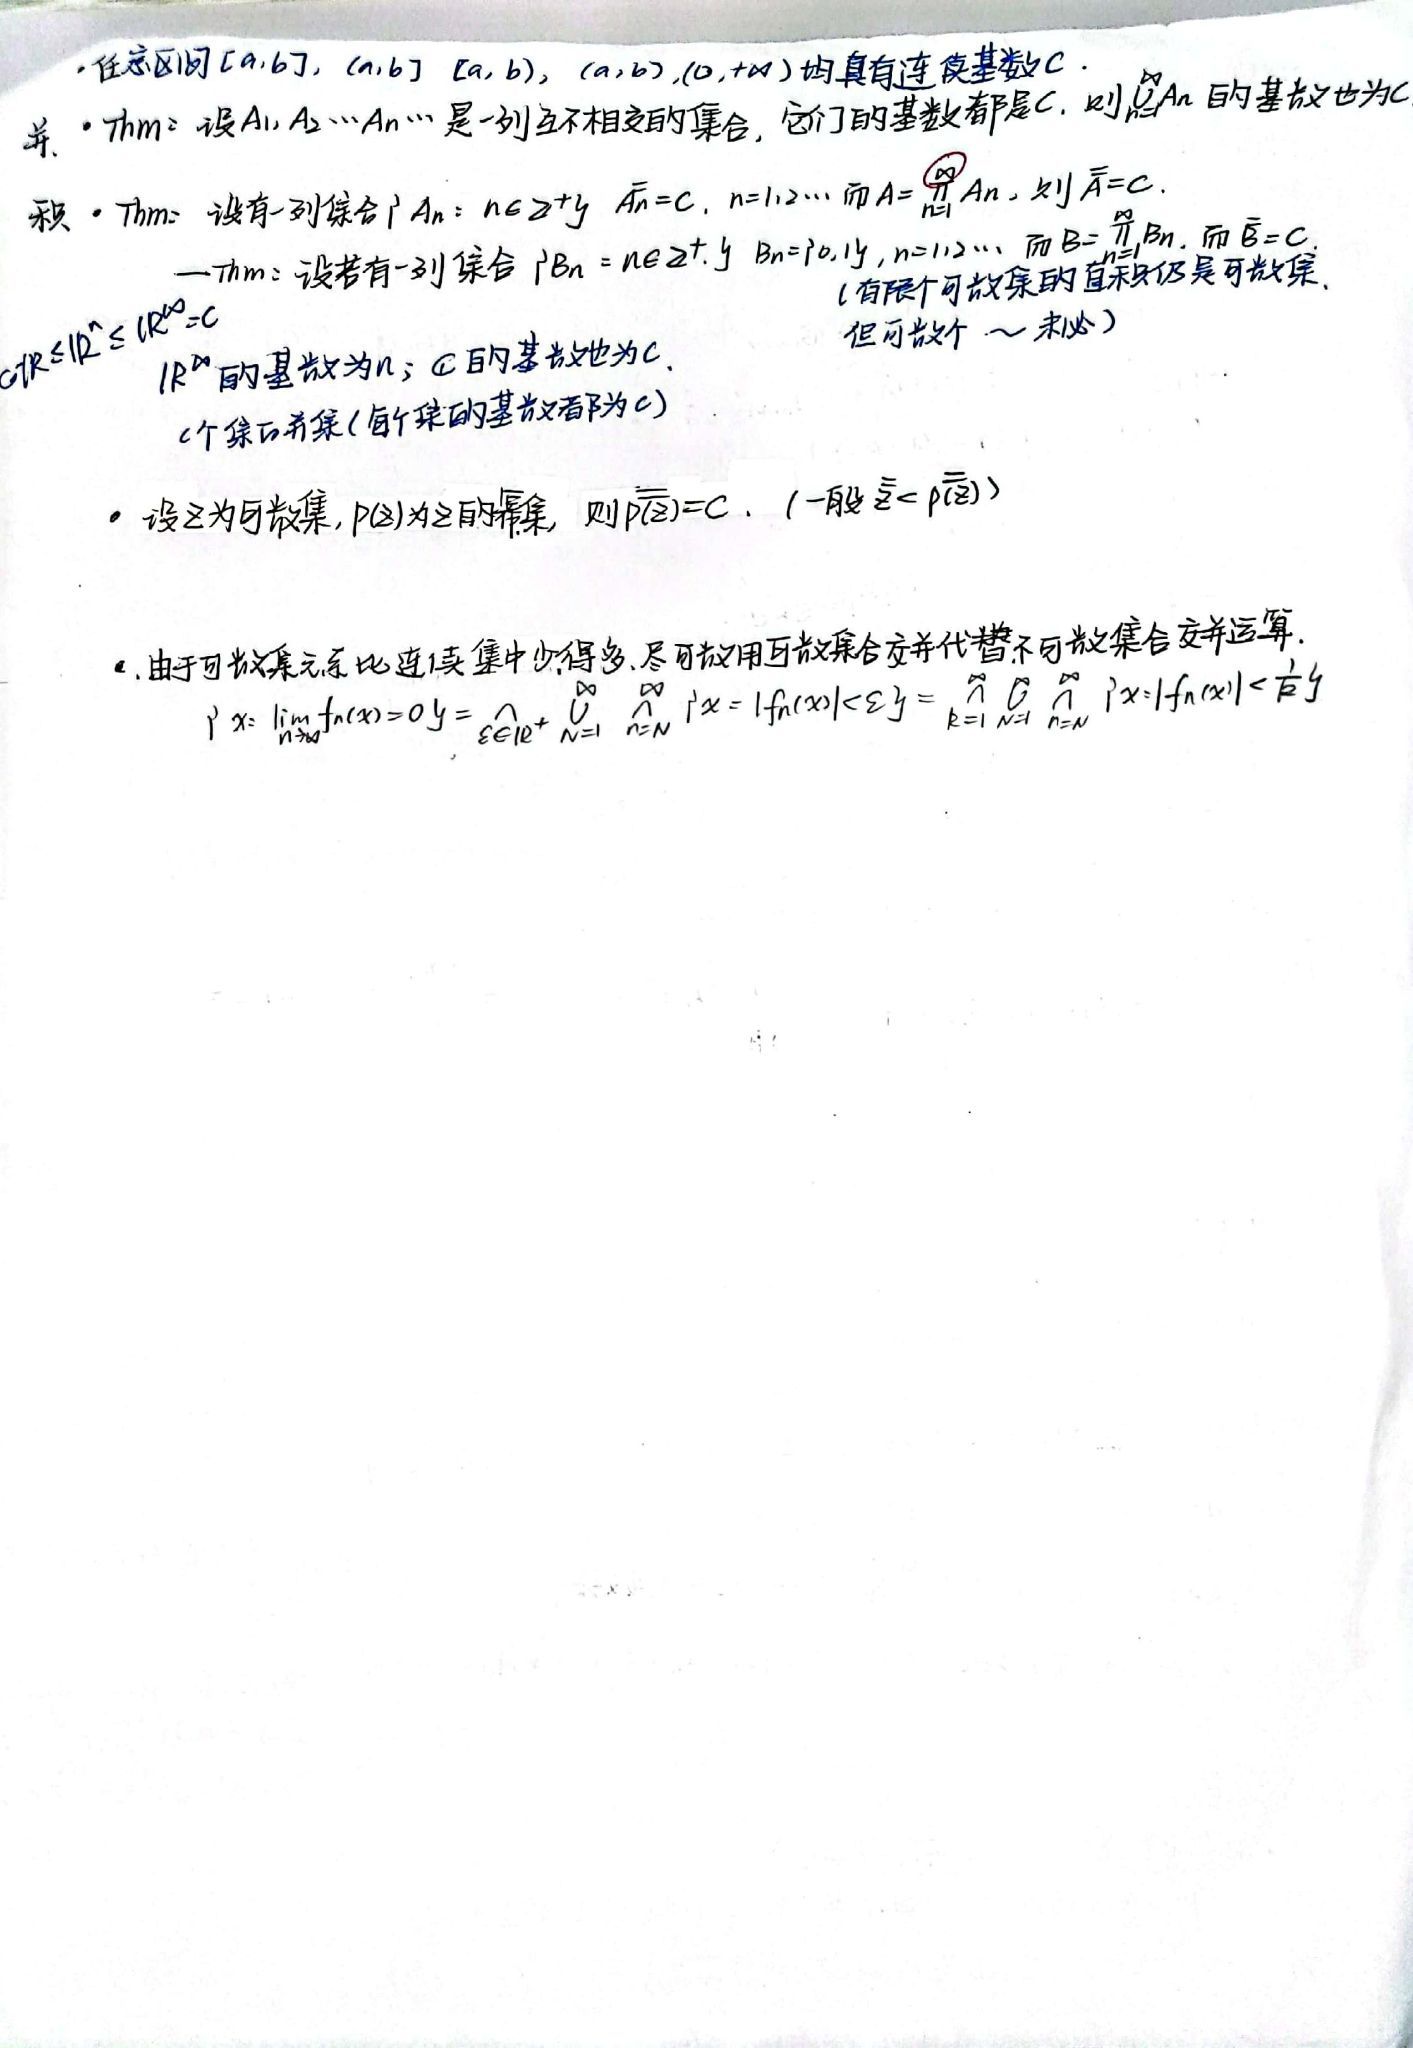 ·任意区间[a,b], (a,b] [a,b), (a,b),(0,+∞)均具有连续基数C.
并. ·Thm: 设A1, A2…An… 是一列互不相交的集合, 它们的基数都是C. 则∪_{n=1}^∞ An 的基数也为C.
积 ·Thm: 设有一列集合{An: n∈Z+} A̿n=C, n=1,2… 而A=∏_{n=1}^∞ An, 则A̿=C.
—Thm: 设若有一列集合{Bn: n∈Z+.} Bn={0,1}, n=1,2… 而B=∏_{n=1}^∞ Bn. 而B̿=C.
(有限个可数集的直积仍是可数集.
但可数个～未必)
C=ℝ≤ℝ^n≤ℝ^∞=C
ℝ^∞的基数为n; ℂ的基数也为C.
C个集的并集(每个集的基数都为C)
·设Z为可数集, P(Z)为Z的幂集, 则P(Z)̿=C. (一般 Z̿<P(Z)̿)
·由于可数集元素比连续集中少得多.尽可能用可数集合交并代替不可数集合交并运算.
{x: lim_{n→∞} fn(x)=0}=∩_{ε∈ℝ+} ∪_{N=1}^∞ ∩_{n=N}^∞ {x:|fn(x)|<ε}=∩_{k=1}^∞ ∪_{N=1}^∞ ∩_{n=N}^∞ {x:|fn(x)|<1/k}